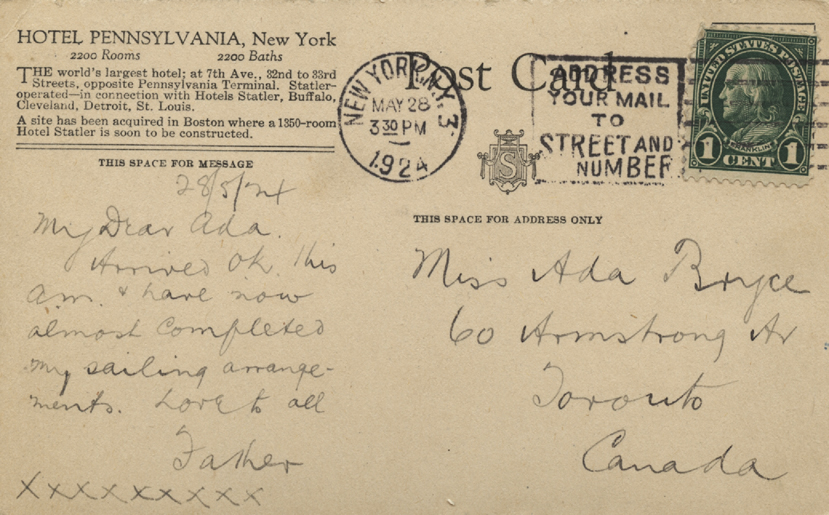 HOTEL PENNSYLVANIA, New York
2200 Rooms 2200 Baths
THE world's largest hotel; at 7th Ave., 32nd to 33rd
Streets, opposite Pennsylvania Terminal. Statler-
operated—in connection with Hotels Statler, Buffalo,
Cleveland, Detroit, St. Louis.
A site has been acquired in Boston where a 1350-room
Hotel Statler is soon to be constructed.
THIS SPACE FOR MESSAGE
28/5/24
My Dear Ada.
Arrived OK. this
a.m. & have now
almost completed
my sailing arrange-
ments. Love to all
Father
XXXXXXXXX
Post Card
NEW YORK, N.Y. 3
MAY 28
3 30 PM
1924
ADDRESS
YOUR MAIL
TO
STREET AND
NUMBER
UNITED STATES POSTAGE
FRANKLIN
1 CENT 1
S
THIS SPACE FOR ADDRESS ONLY
Miss Ada Bryce
60 Armstrong Av
Toronto
Canada